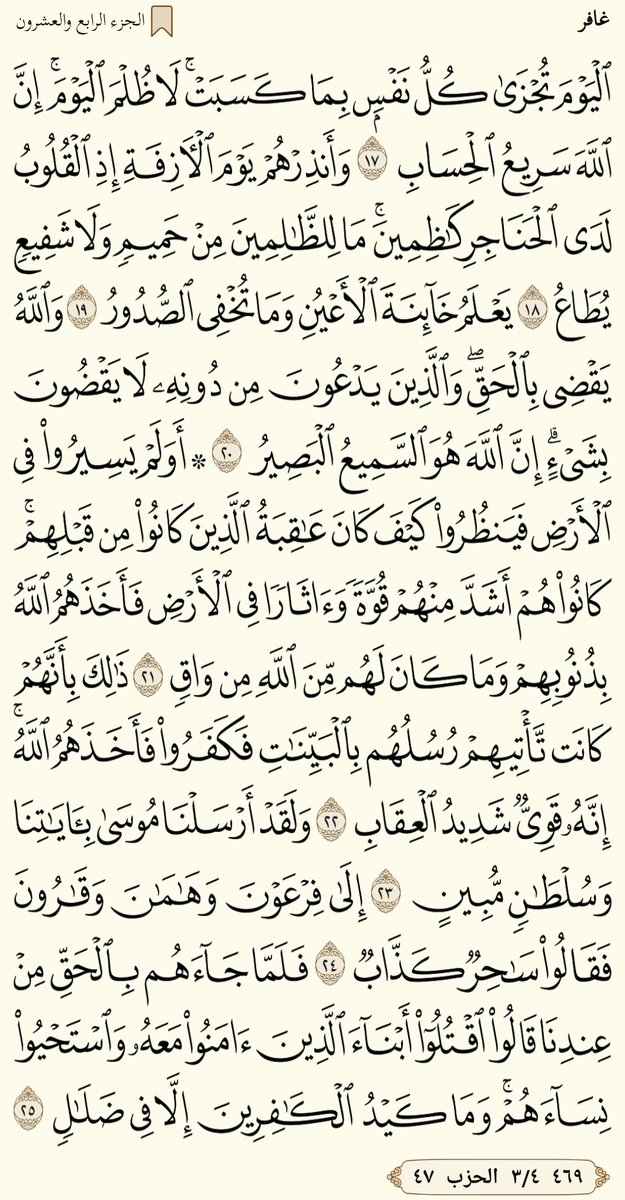 غافر
الجزء الرابع والعشرون
ٱلۡيَوۡمَ تُجۡزَىٰ كُلُّ نَفۡسِۭ بِمَا كَسَبَتۡۚ لَا ظُلۡمَ ٱلۡيَوۡمَۚ إِنَّ
ٱللَّهَ سَرِيعُ ٱلۡحِسَابِ ١٧ وَأَنذِرۡهُمۡ يَوۡمَ ٱلۡأٓزِفَةِ إِذِ ٱلۡقُلُوبُ
لَدَى ٱلۡحَنَاجِرِ كَٰظِمِينَۚ مَا لِلظَّٰلِمِينَ مِنۡ حَمِيمٖ وَلَا شَفِيعٖ
يُطَاعُ ١٨ يَعۡلَمُ خَآئِنَةَ ٱلۡأَعۡيُنِ وَمَا تُخۡفِي ٱلصُّدُورُ ١٩ وَٱللَّهُ
يَقۡضِي بِٱلۡحَقِّۖ وَٱلَّذِينَ يَدۡعُونَ مِن دُونِهِۦ لَا يَقۡضُونَ
بِشَيۡءٍۗ إِنَّ ٱللَّهَ هُوَ ٱلسَّمِيعُ ٱلۡبَصِيرُ ٢٠ ۞ أَوَلَمۡ يَسِيرُواْ فِي
ٱلۡأَرۡضِ فَيَنظُرُواْ كَيۡفَ كَانَ عَٰقِبَةُ ٱلَّذِينَ كَانُواْ مِن قَبۡلِهِمۡۚ
كَانُواْ هُمۡ أَشَدَّ مِنۡهُمۡ قُوَّةٗ وَءَاثَارٗا فِي ٱلۡأَرۡضِ فَأَخَذَهُمُ ٱللَّهُ
بِذُنُوبِهِمۡ وَمَا كَانَ لَهُم مِّنَ ٱللَّهِ مِن وَاقٖ ٢١ ذَٰلِكَ بِأَنَّهُمۡ
كَانَت تَّأۡتِيهِمۡ رُسُلُهُم بِٱلۡبَيِّنَٰتِ فَكَفَرُواْ فَأَخَذَهُمُ ٱللَّهُۚ
إِنَّهُۥ قَوِيّٞ شَدِيدُ ٱلۡعِقَابِ ٢٢ وَلَقَدۡ أَرۡسَلۡنَا مُوسَىٰ بِـَٔايَٰتِنَا
وَسُلۡطَٰنٖ مُّبِينٍ ٢٣ إِلَىٰ فِرۡعَوۡنَ وَهَٰمَٰنَ وَقَٰرُونَ
فَقَالُواْ سَٰحِرٞ كَذَّابٞ ٢٤ فَلَمَّا جَآءَهُم بِٱلۡحَقِّ مِنۡ
عِندِنَا قَالُواْ ٱقۡتُلُوٓاْ أَبۡنَآءَ ٱلَّذِينَ ءَامَنُواْ مَعَهُۥ وَٱسۡتَحۡيُواْ
نِسَآءَهُمۡۚ وَمَا كَيۡدُ ٱلۡكَٰفِرِينَ إِلَّا فِي ضَلَٰلٖ ٢٥
٤٦٩ ٣/٤ الحزب ٤٧